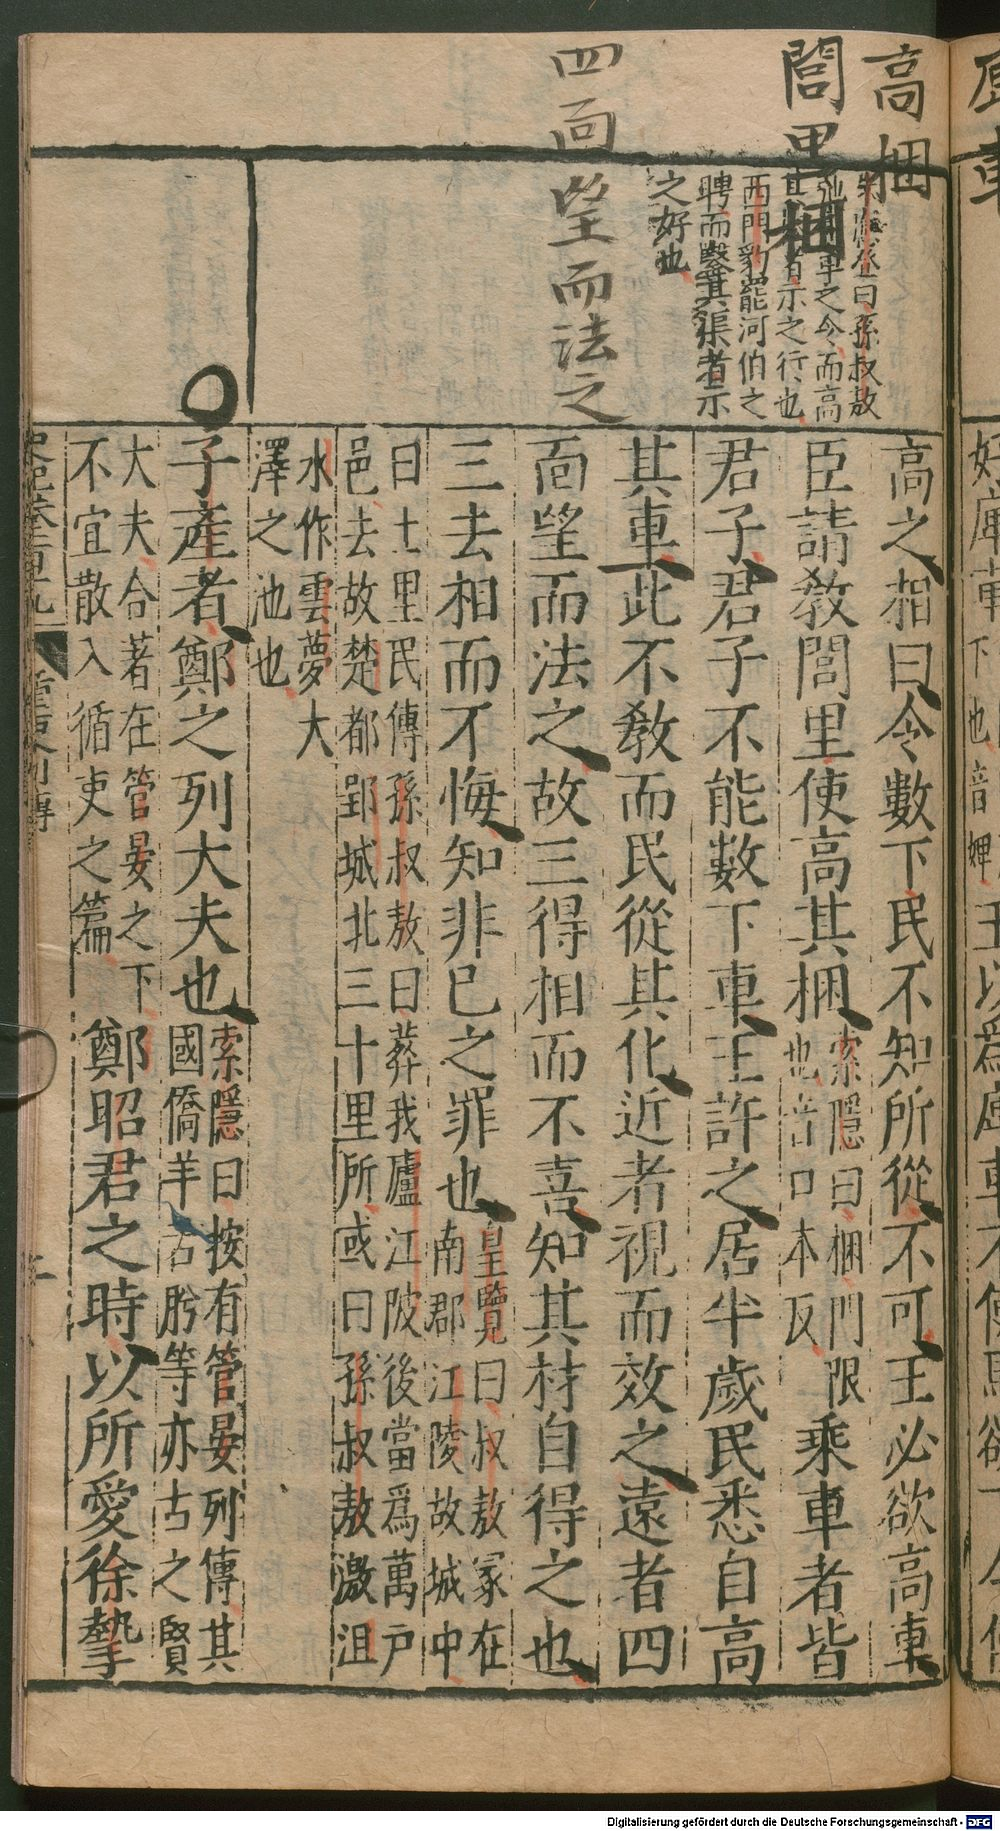 高梱
閭里梱
四面望而法之
曰孫叔敖
車之令而高
者示之行也
西門豹罷河伯之
聘而毉其渠者示
之好也
高之相曰令數下民不知所從不可王必欲高車
臣請教閭里使高其梱索隱曰梱門限
也音口本反乘車者皆
君子君子不能數下車王許之居半歲民悉自高
其車此不教而民從其化近者視而效之遠者四
面望而法之故三得相而不喜知其材自得之也
三去相而不悔知非已之罪也皇覽曰叔敖冢在
南郡江陵故城中
曰土里民傳孫叔敖曰葬我廬江陂後當爲萬戸
邑去故楚都郢城北三十里所或曰孫叔敖激沮
水作雲夢大
澤之池也
子產者鄭之列大夫也索隱曰按有管晏列傳其
國僑羊舌肸等亦古之賢
大夫合著在管晏之下
不宜散入循吏之篇鄭昭君之時以所愛徐摯
好庫車下也音婢王以爲庳車不便馬欲下令
Digitalisierung gefördert durch die Deutsche Forschungsgemeinschaft - DFG